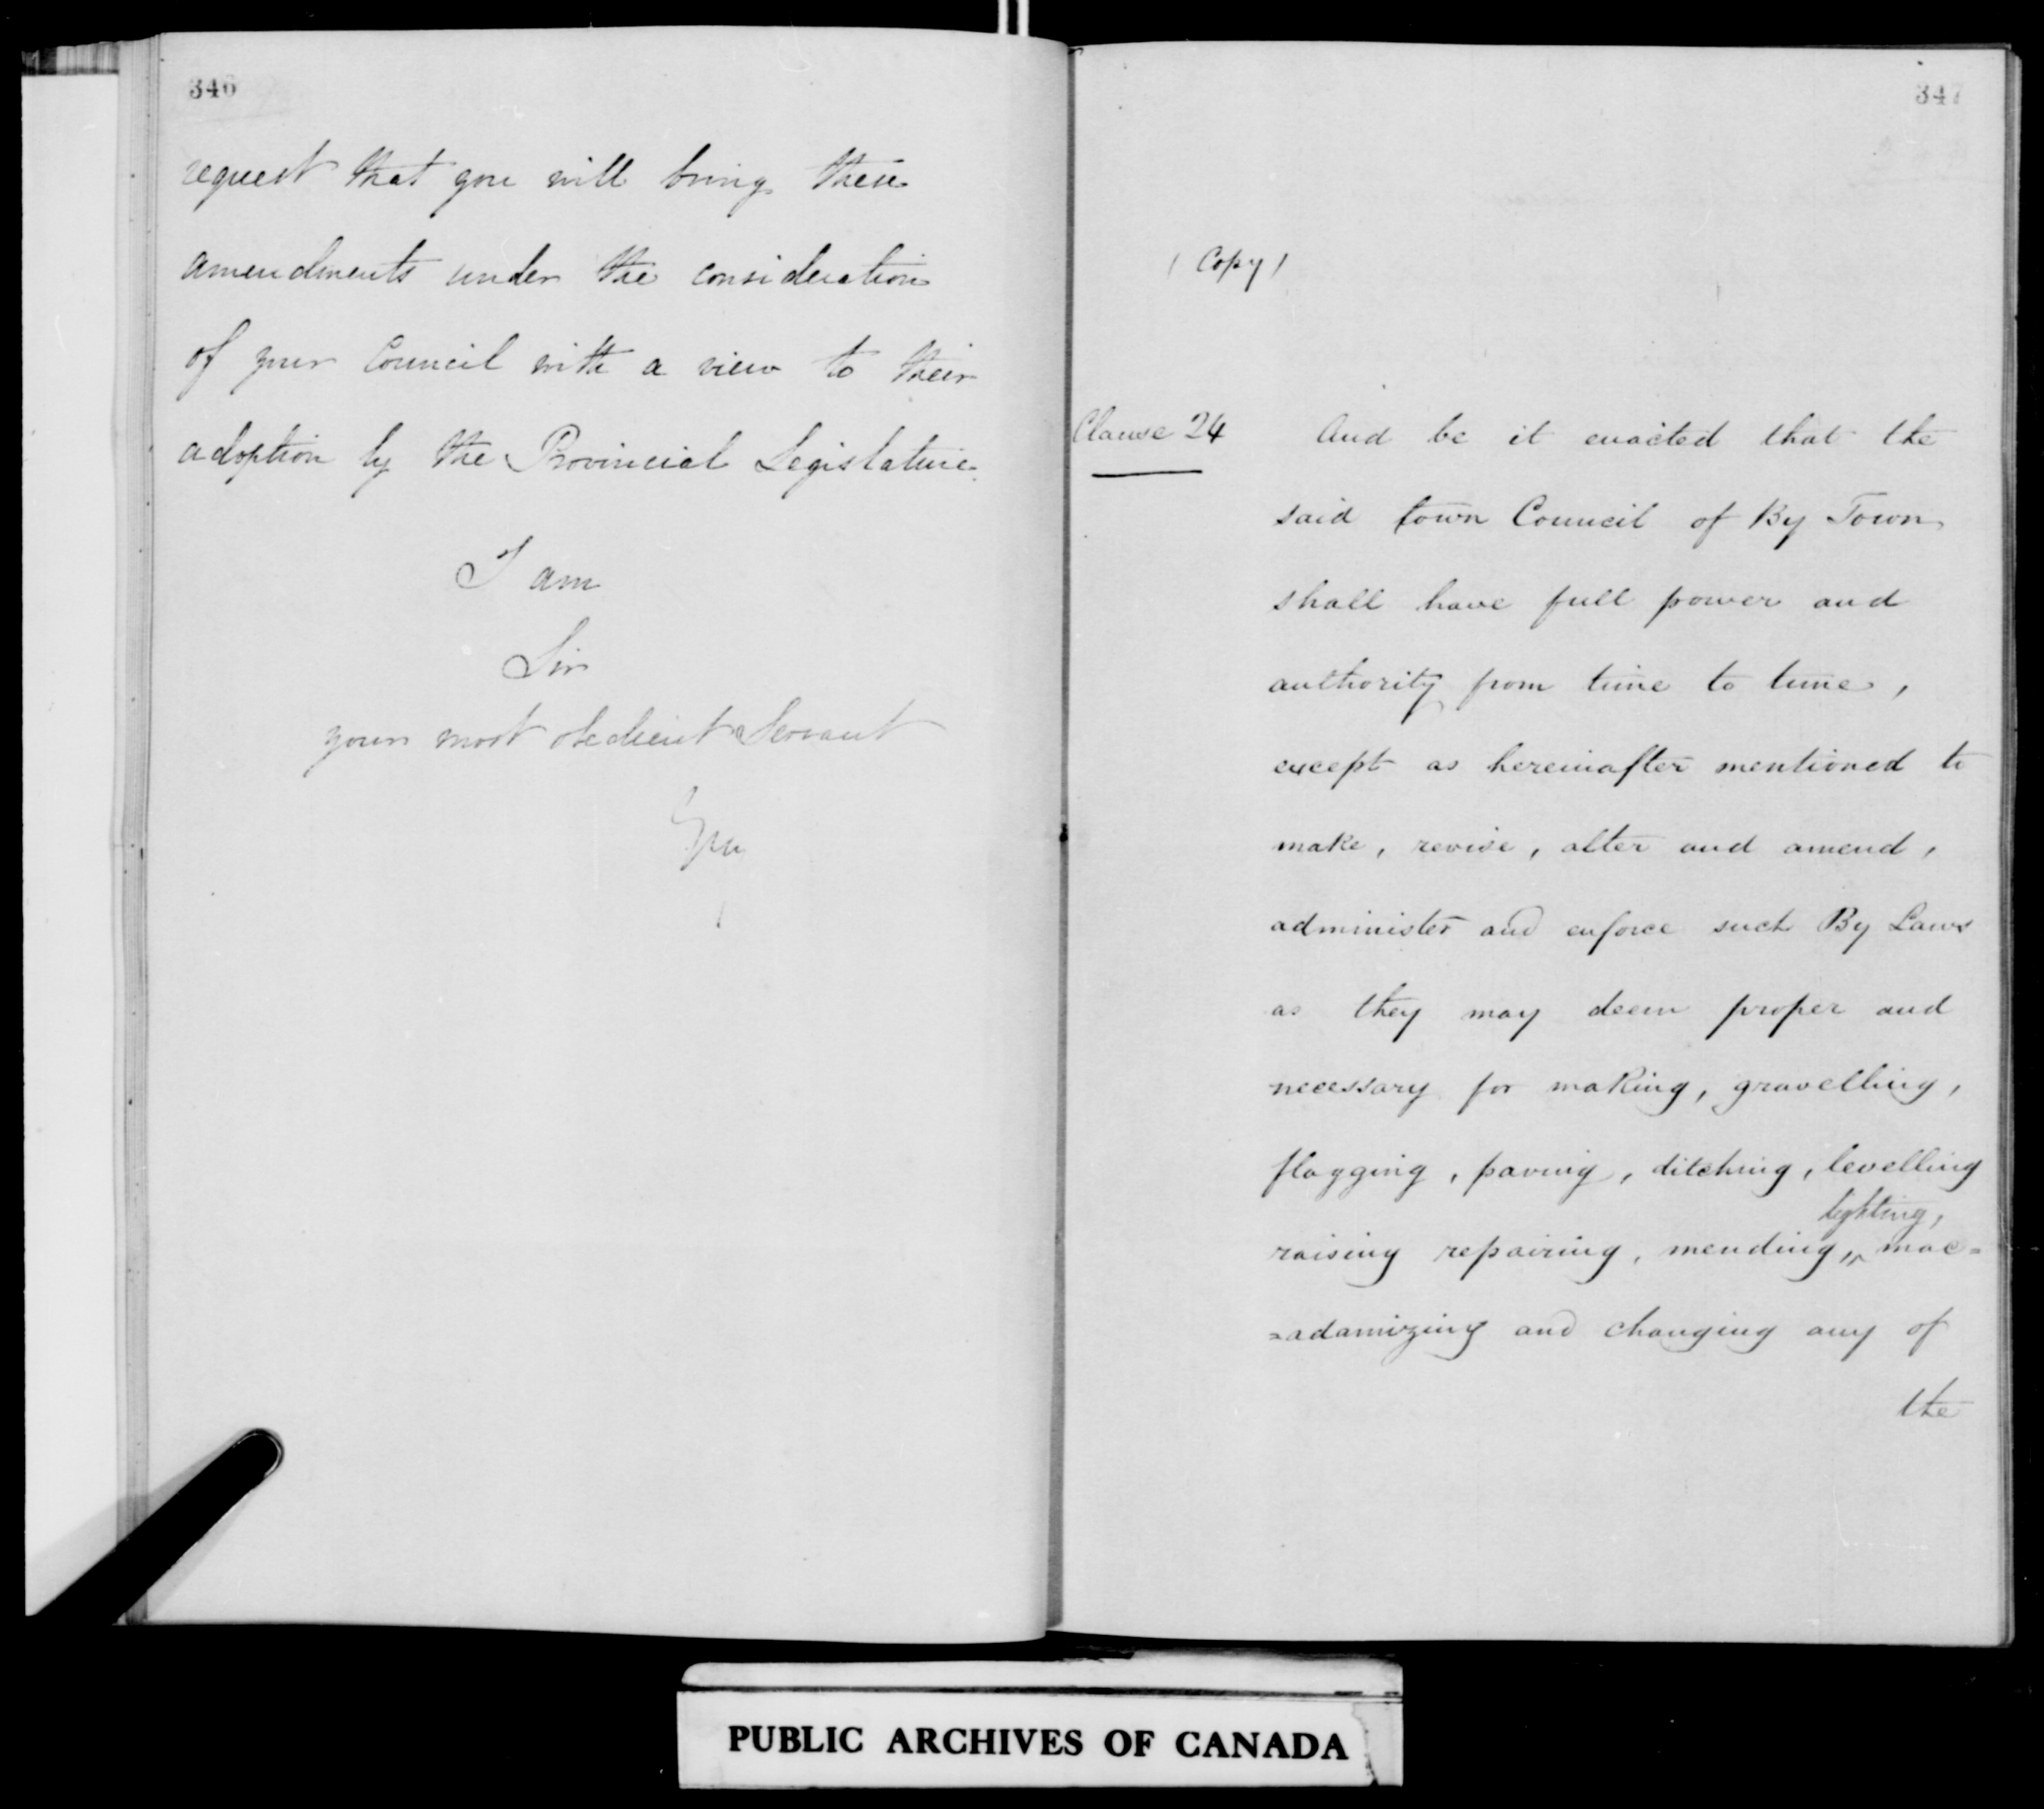 346
request that you will bring these
amendments under the consideration
of your Council with a view to their
adoption by the Provincial Legislature.
I am
Sir
your most obedient Servant
347
(Copy)
Clause 24
And be it enacted that the
said town Council of By Town
shall have full power and
authority from time to time,
except as hereinafter mentioned to
make, revise, alter and amend,
administer and enforce such By Laws
as they may deem proper and
necessary for making, gravelling,
flagging, paving, ditching, levelling
lighting,
raising repairing, mending, mac=
=adamizing and changing any of
the
PUBLIC ARCHIVES OF CANADA